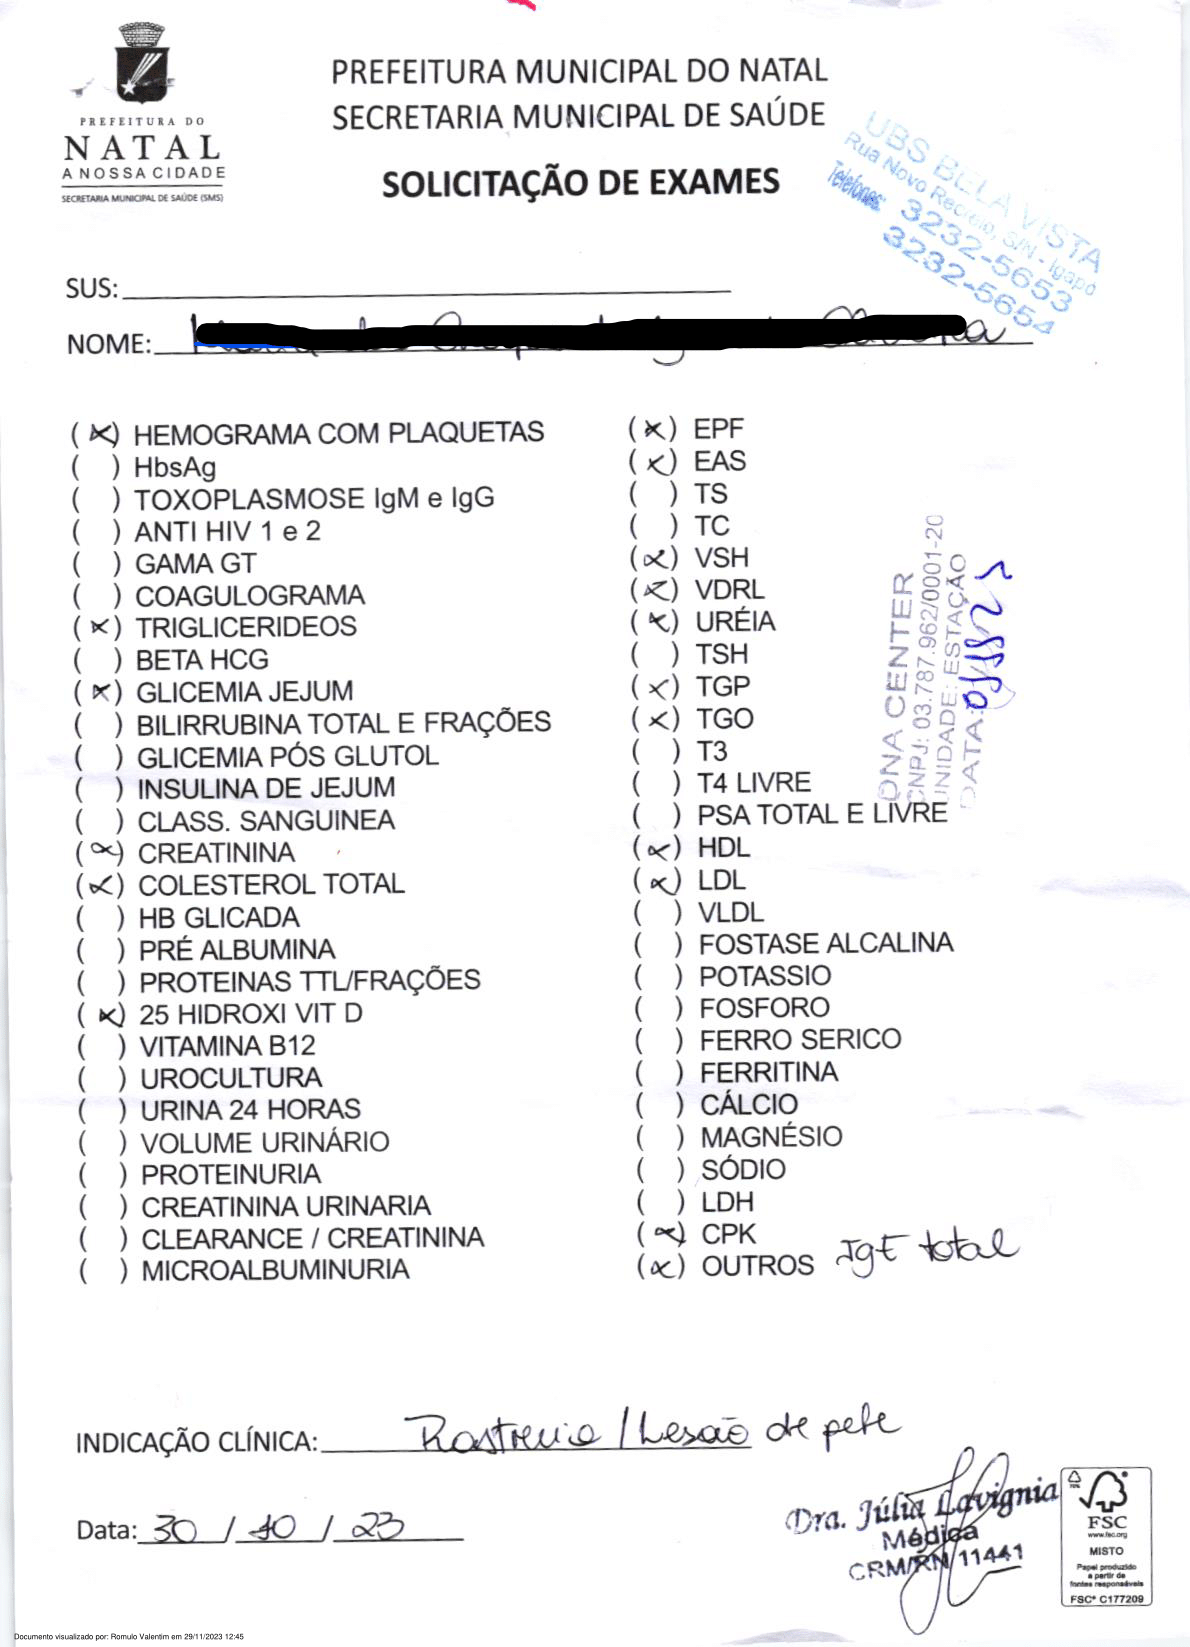 PREFEITURA DO
NATAL
A NOSSA CIDADE
SECRETARIA MUNICIPAL DE SAÚDE (SMS)
PREFEITURA MUNICIPAL DO NATAL
SECRETARIA MUNICIPAL DE SAÚDE
SOLICITAÇÃO DE EXAMES
UBS BELA VISTA
Rua Novo Recreio, S/N - Igapó
Telefones: 3232-5653
3232-5654
SUS:
NOME:
(x) HEMOGRAMA COM PLAQUETAS
( ) HbsAg
( ) TOXOPLASMOSE IgM e IgG
( ) ANTI HIV 1 e 2
( ) GAMA GT
( ) COAGULOGRAMA
(x) TRIGLICERIDEOS
( ) BETA HCG
(x) GLICEMIA JEJUM
( ) BILIRRUBINA TOTAL E FRAÇÕES
( ) GLICEMIA PÓS GLUTOL
( ) INSULINA DE JEJUM
( ) CLASS. SANGUINEA
(x) CREATININA
(x) COLESTEROL TOTAL
( ) HB GLICADA
( ) PRÉ ALBUMINA
( ) PROTEINAS TTL/FRAÇÕES
(x) 25 HIDROXI VIT D
( ) VITAMINA B12
( ) UROCULTURA
( ) URINA 24 HORAS
( ) VOLUME URINÁRIO
( ) PROTEINURIA
( ) CREATININA URINARIA
( ) CLEARANCE / CREATININA
( ) MICROALBUMINURIA
(x) EPF
(x) EAS
( ) TS
( ) TC
(x) VSH
(x) VDRL
(x) URÉIA
( ) TSH
(x) TGP
(x) TGO
( ) T3
( ) T4 LIVRE
( ) PSA TOTAL E LIVRE
(x) HDL
(x) LDL
( ) VLDL
( ) FOSTASE ALCALINA
( ) POTASSIO
( ) FOSFORO
( ) FERRO SERICO
( ) FERRITINA
( ) CÁLCIO
( ) MAGNÉSIO
( ) SÓDIO
( ) LDH
(x) CPK
(x) OUTROS IgE total
DNA CENTER
CNPJ: 03.787.962/0001-20
UNIDADE: ESTAÇÃO
DATA:
INDICAÇÃO CLÍNICA: Rastreio / Lesão de pele
Data: 30 / 10 / 23
Dra. Júlia Lavignia
Médica
CRM/RN 11441
FSC
www.fsc.org
MISTO
Papel produzido
a partir de
fontes responsáveis
FSC® C177209
Documento visualizado por: Romulo Valentim em 29/11/2023 12:45